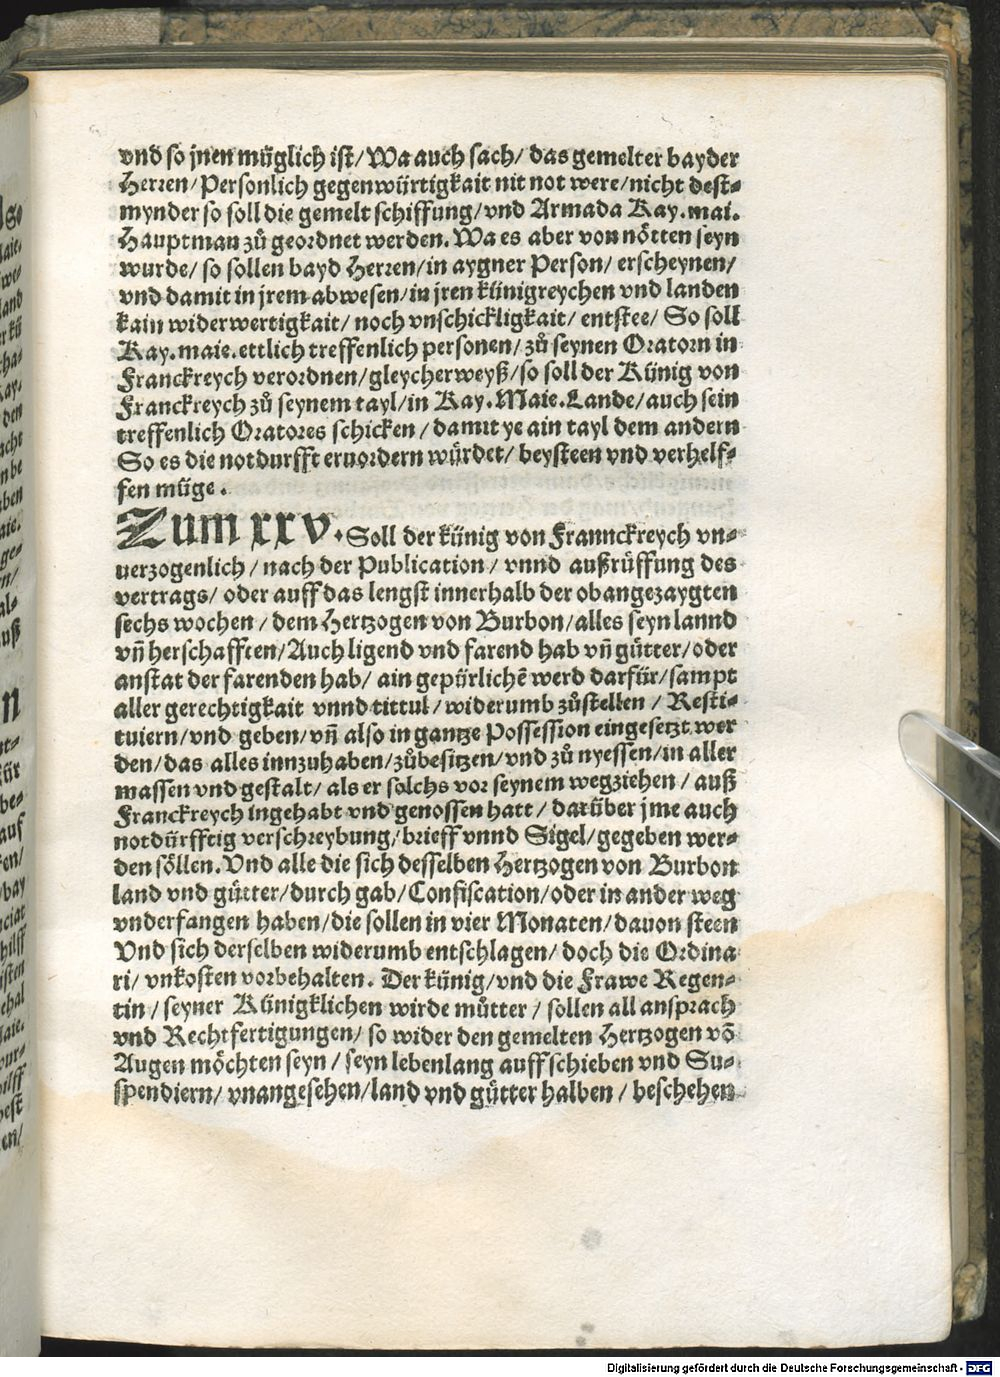 vnd so jnen müglich ist/ Wa auch sach/ das gemelter bayder
Herren/ Personlich gegenwürtigkait nit not were/ nicht dest⸗
mynder so soll die gemelt schiffung/ vnd Armada Kay. mai.
Hauptman zů geordnet werden. Wa es aber von nötten seyn
wurde/ so sollen bayd Herren/ in aygner Person/ erscheynen/
vnd damit in jrem abwesen/ in jren künigreychen vnd landen
kain widerwertigkait/ noch vnschickligkait/ entstee/ So soll
Kay. maie. ettlich treffenlich personen/ zů seynen Oratorn in
Franckreych verordnen/ gleycherweyß/ so soll der Künig von
Franckreych zů seynem tayl/ in Kay. Maie. Lande/ auch sein
treffenlich Oratores schicken/ damit ye ain tayl dem andern
So es die notdurfft eruordern würdet/ beysteen vnd verhelf⸗
fen müge.
Zum xxv. Soll der künig von Frannckreych vn⸗
uerzogenlich/ nach der Publication/ vnnd außrüffung des
vertrags/ oder auff das lengst innerhalb der obangezaygten
sechs wochen/ dem Hertzogen von Burbon/ alles seyn lannd
vñ herschafften/ Auch ligend vnd farend hab vñ gütter/ oder
anstat der farenden hab/ ain gepürlichē werd darfür/ sampt
aller gerechtigkait vnnd tittul/ widerumb zůstellen/ Resti⸗
tuiern/ vnd geben/ vñ also in gantze Possession eingesetzt wer
den/ das alles innzuhaben/ zůbesitzen/ vnd zů nyessen/ in aller
massen vnd gestalt/ als er solchs vor seynem wegziehen/ auß
Franckreych ingehabt vnd genossen hatt/ darüber jme auch
notdürfftig verschreybung/ brieff vnnd Sigel/ gegeben wer⸗
den söllen. Vnd alle die sich desselben Hertzogen von Burbon
land vnd gütter/ durch gab/ Confiscation/ oder in ander weg
vnderfangen haben/ die sollen in vier Monaten/ dauon steen
Vnd sich derselben widerumb entschlagen/ doch die Ordina
ri/ vnkosten vorbehalten. Der künig/ vnd die Frawe Regen⸗
tin/ seyner Künigklichen wirde můtter/ sollen all ansprach
vnd Rechtfertigungen/ so wider den gemelten Hertzogen vō
Augen möchten seyn/ seyn lebenlang auffschieben vnd Su⸗
spendiern/ vnangesehen/ land vnd gütter halben/ beschehen
Digitalisierung gefördert durch die Deutsche Forschungsgemeinschaft - DFG